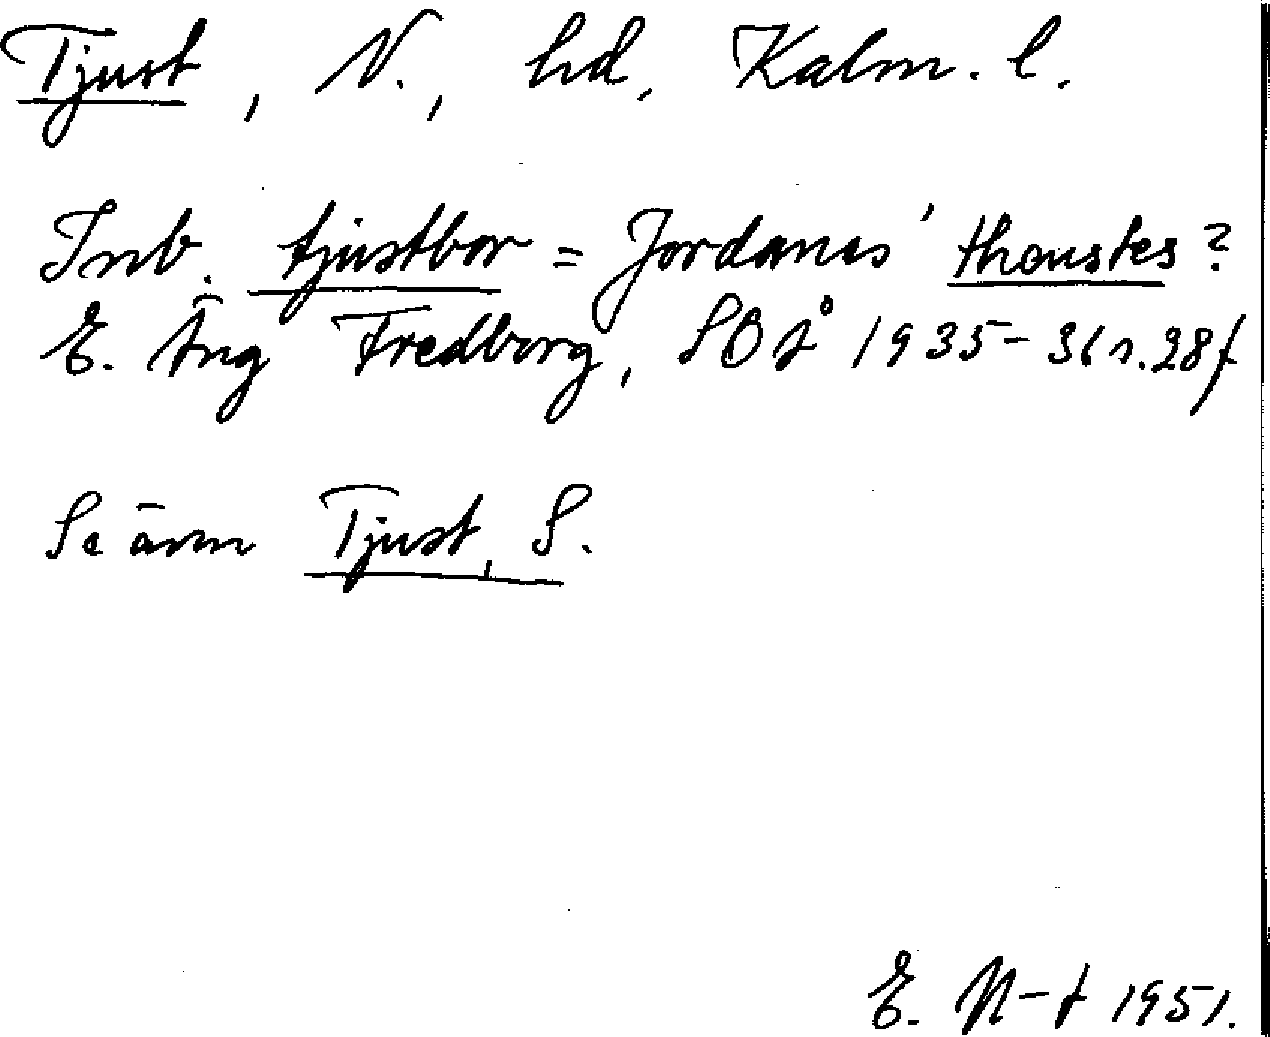 Tjust, N., hd, Kalm. l.
Inb. tjustbor = Jordanes' thoustes?
E. Äng Fredborg, SOÅ 1935-36 s. 28f
Se även Tjust, S.
E. N-t 1951.